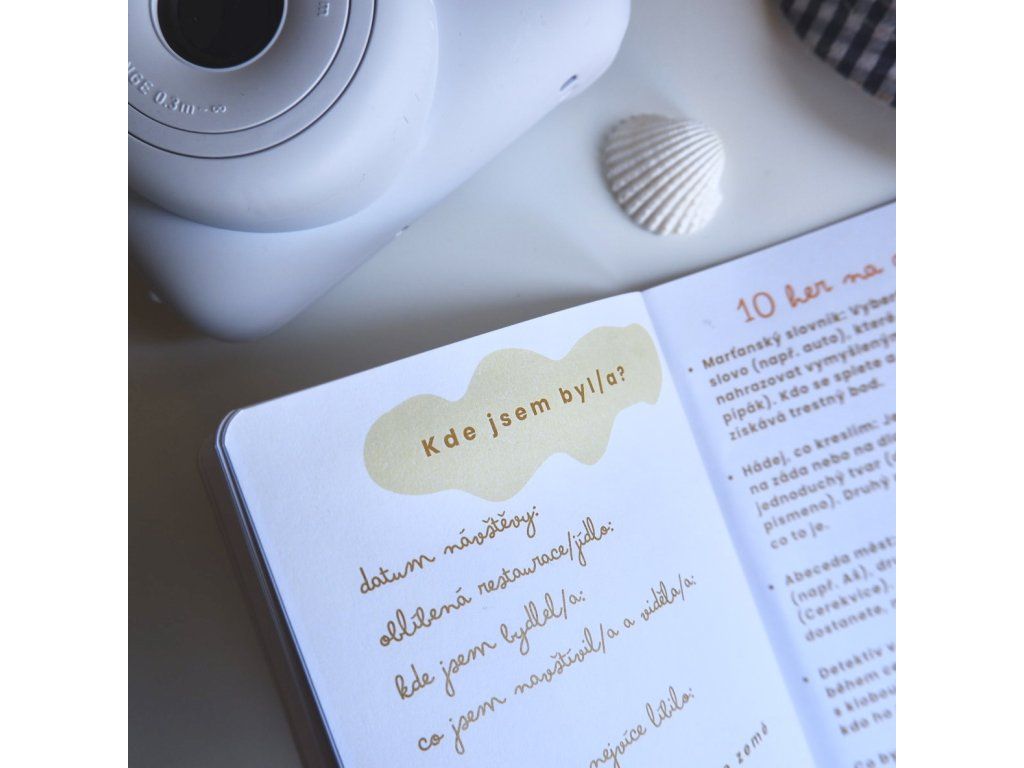 NGE 0.3m~∞
Kde jsem byl/a?
datum návštěvy:
oblíbená restaurace/jídlo:
kde jsem bydlel/a:
co jsem navštívil/a a viděla/a:
nejvíce líbilo:
země
10 her na
• Marťanský slovník: Vyber
slovo (např. auto), které
nahrazovat vymyšleným
pípák). Kdo se splete a
získává trestný bod.
• Hádej, co kreslím: Je
na záda nebo na dla
jednoduchý tvar (
písmeno). Druhý
co to je.
• Abeceda měst:
(např. Aš), dru
(Cerekvice),
dostanete,
• Detektiv v
během ce
s klobou
kdo ho
Co by